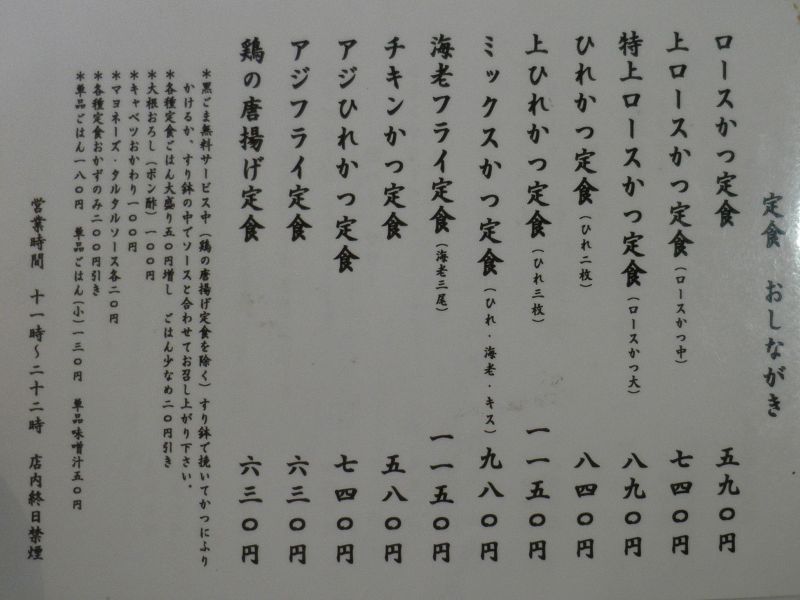 定食 おしながき
ロースかつ定食 五九〇円
上ロースかつ定食（ロースかつ中） 七四〇円
特上ロースかつ定食（ロースかつ大） 八九〇円
ひれかつ定食（ひれ二枚） 八四〇円
上ひれかつ定食（ひれ三枚） 一一五〇円
ミックスかつ定食（ひれ・海老・キス） 九八〇円
海老フライ定食（海老三尾） 一一五〇円
チキンかつ定食 五八〇円
アジひれかつ定食 七四〇円
アジフライ定食 六三〇円
鶏の唐揚げ定食 六三〇円
＊黒ごま無料サービス中（鶏の唐揚げ定食を除く）すり鉢で挽いてかつにふり
かけるか、すり鉢の中でソースと合わせてお召し上がり下さい。
＊各種定食ごはん大盛り五〇円増し ごはん少なめ二〇円引き
＊大根おろし（ポン酢）一〇〇円
＊キャベツおかわり一〇〇円
＊マヨネーズ・タルタルソース各二〇円
＊各種定食おかずのみ二〇〇円引き
＊単品ごはん一八〇円 単品ごはん（小）一三〇円 単品味噌汁五〇円
営業時間 十一時〜二十二時 店内終日禁煙